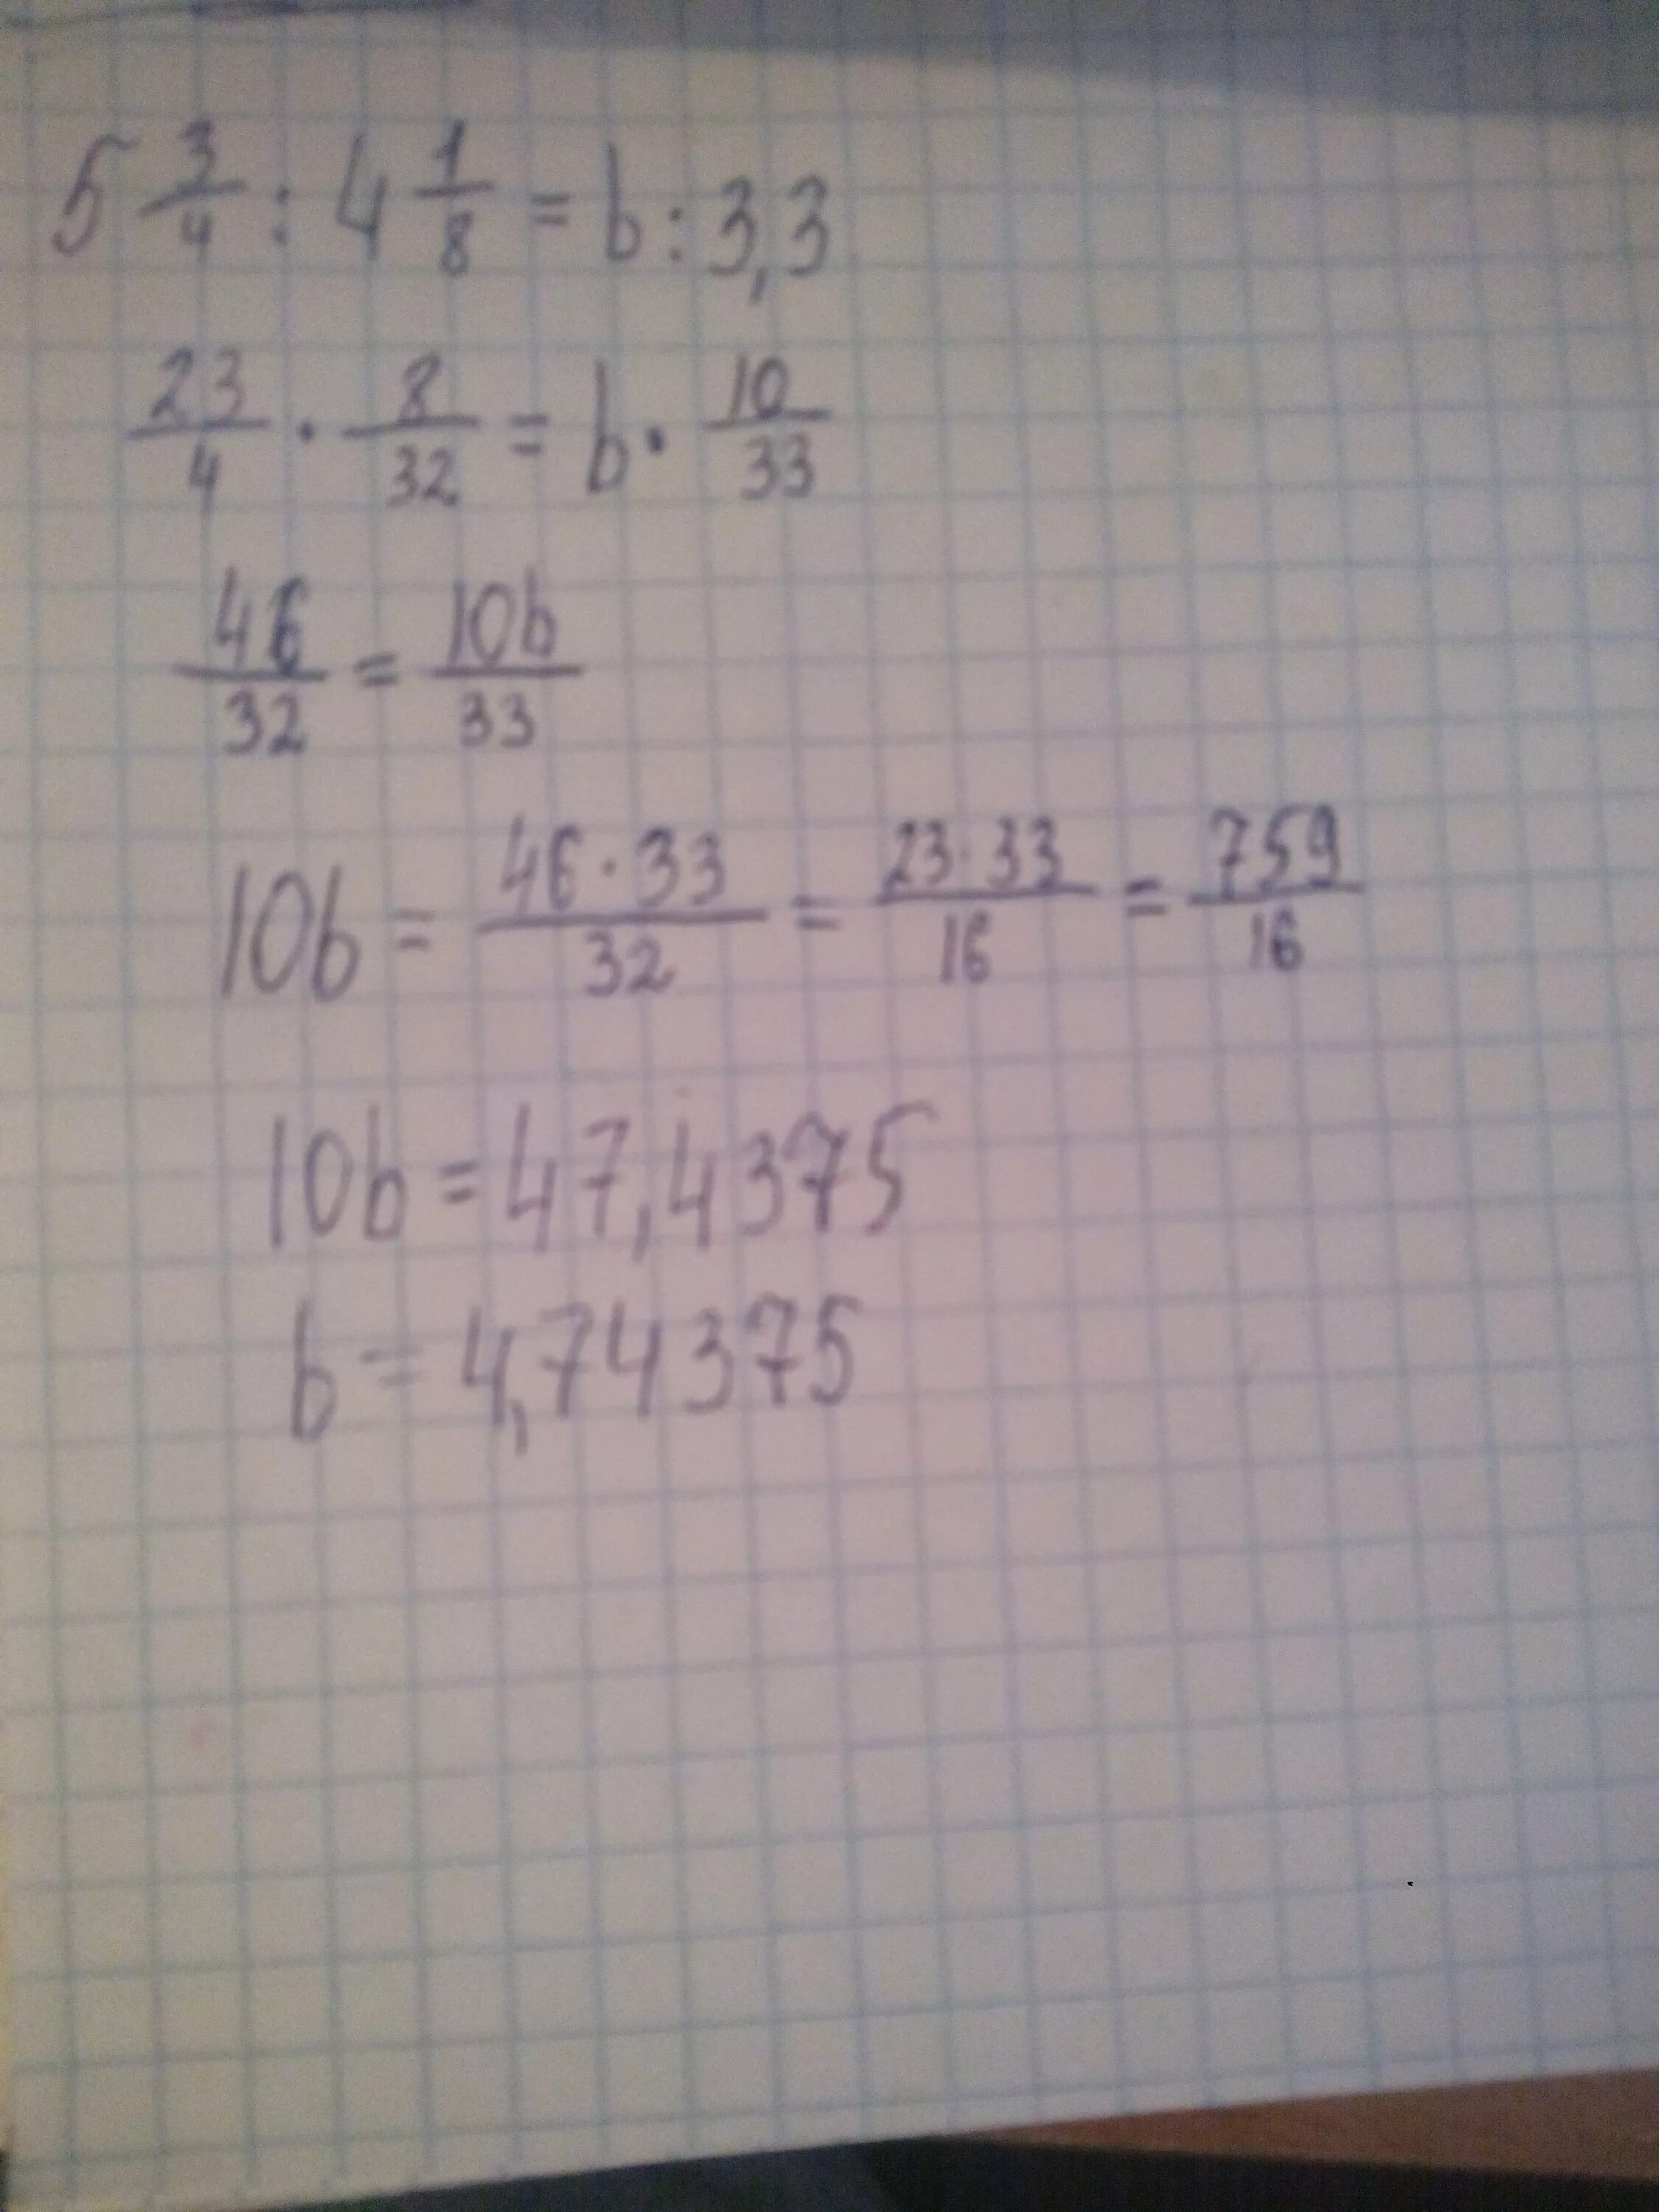 5 3/4 : 4 1/8 = b : 3,3
23/4 · 8/32 = b · 10/33
46/32 = 10b/33
10b = 46·33/32 = 23·33/16 = 759/16
10b = 47,4375
b = 4,74375